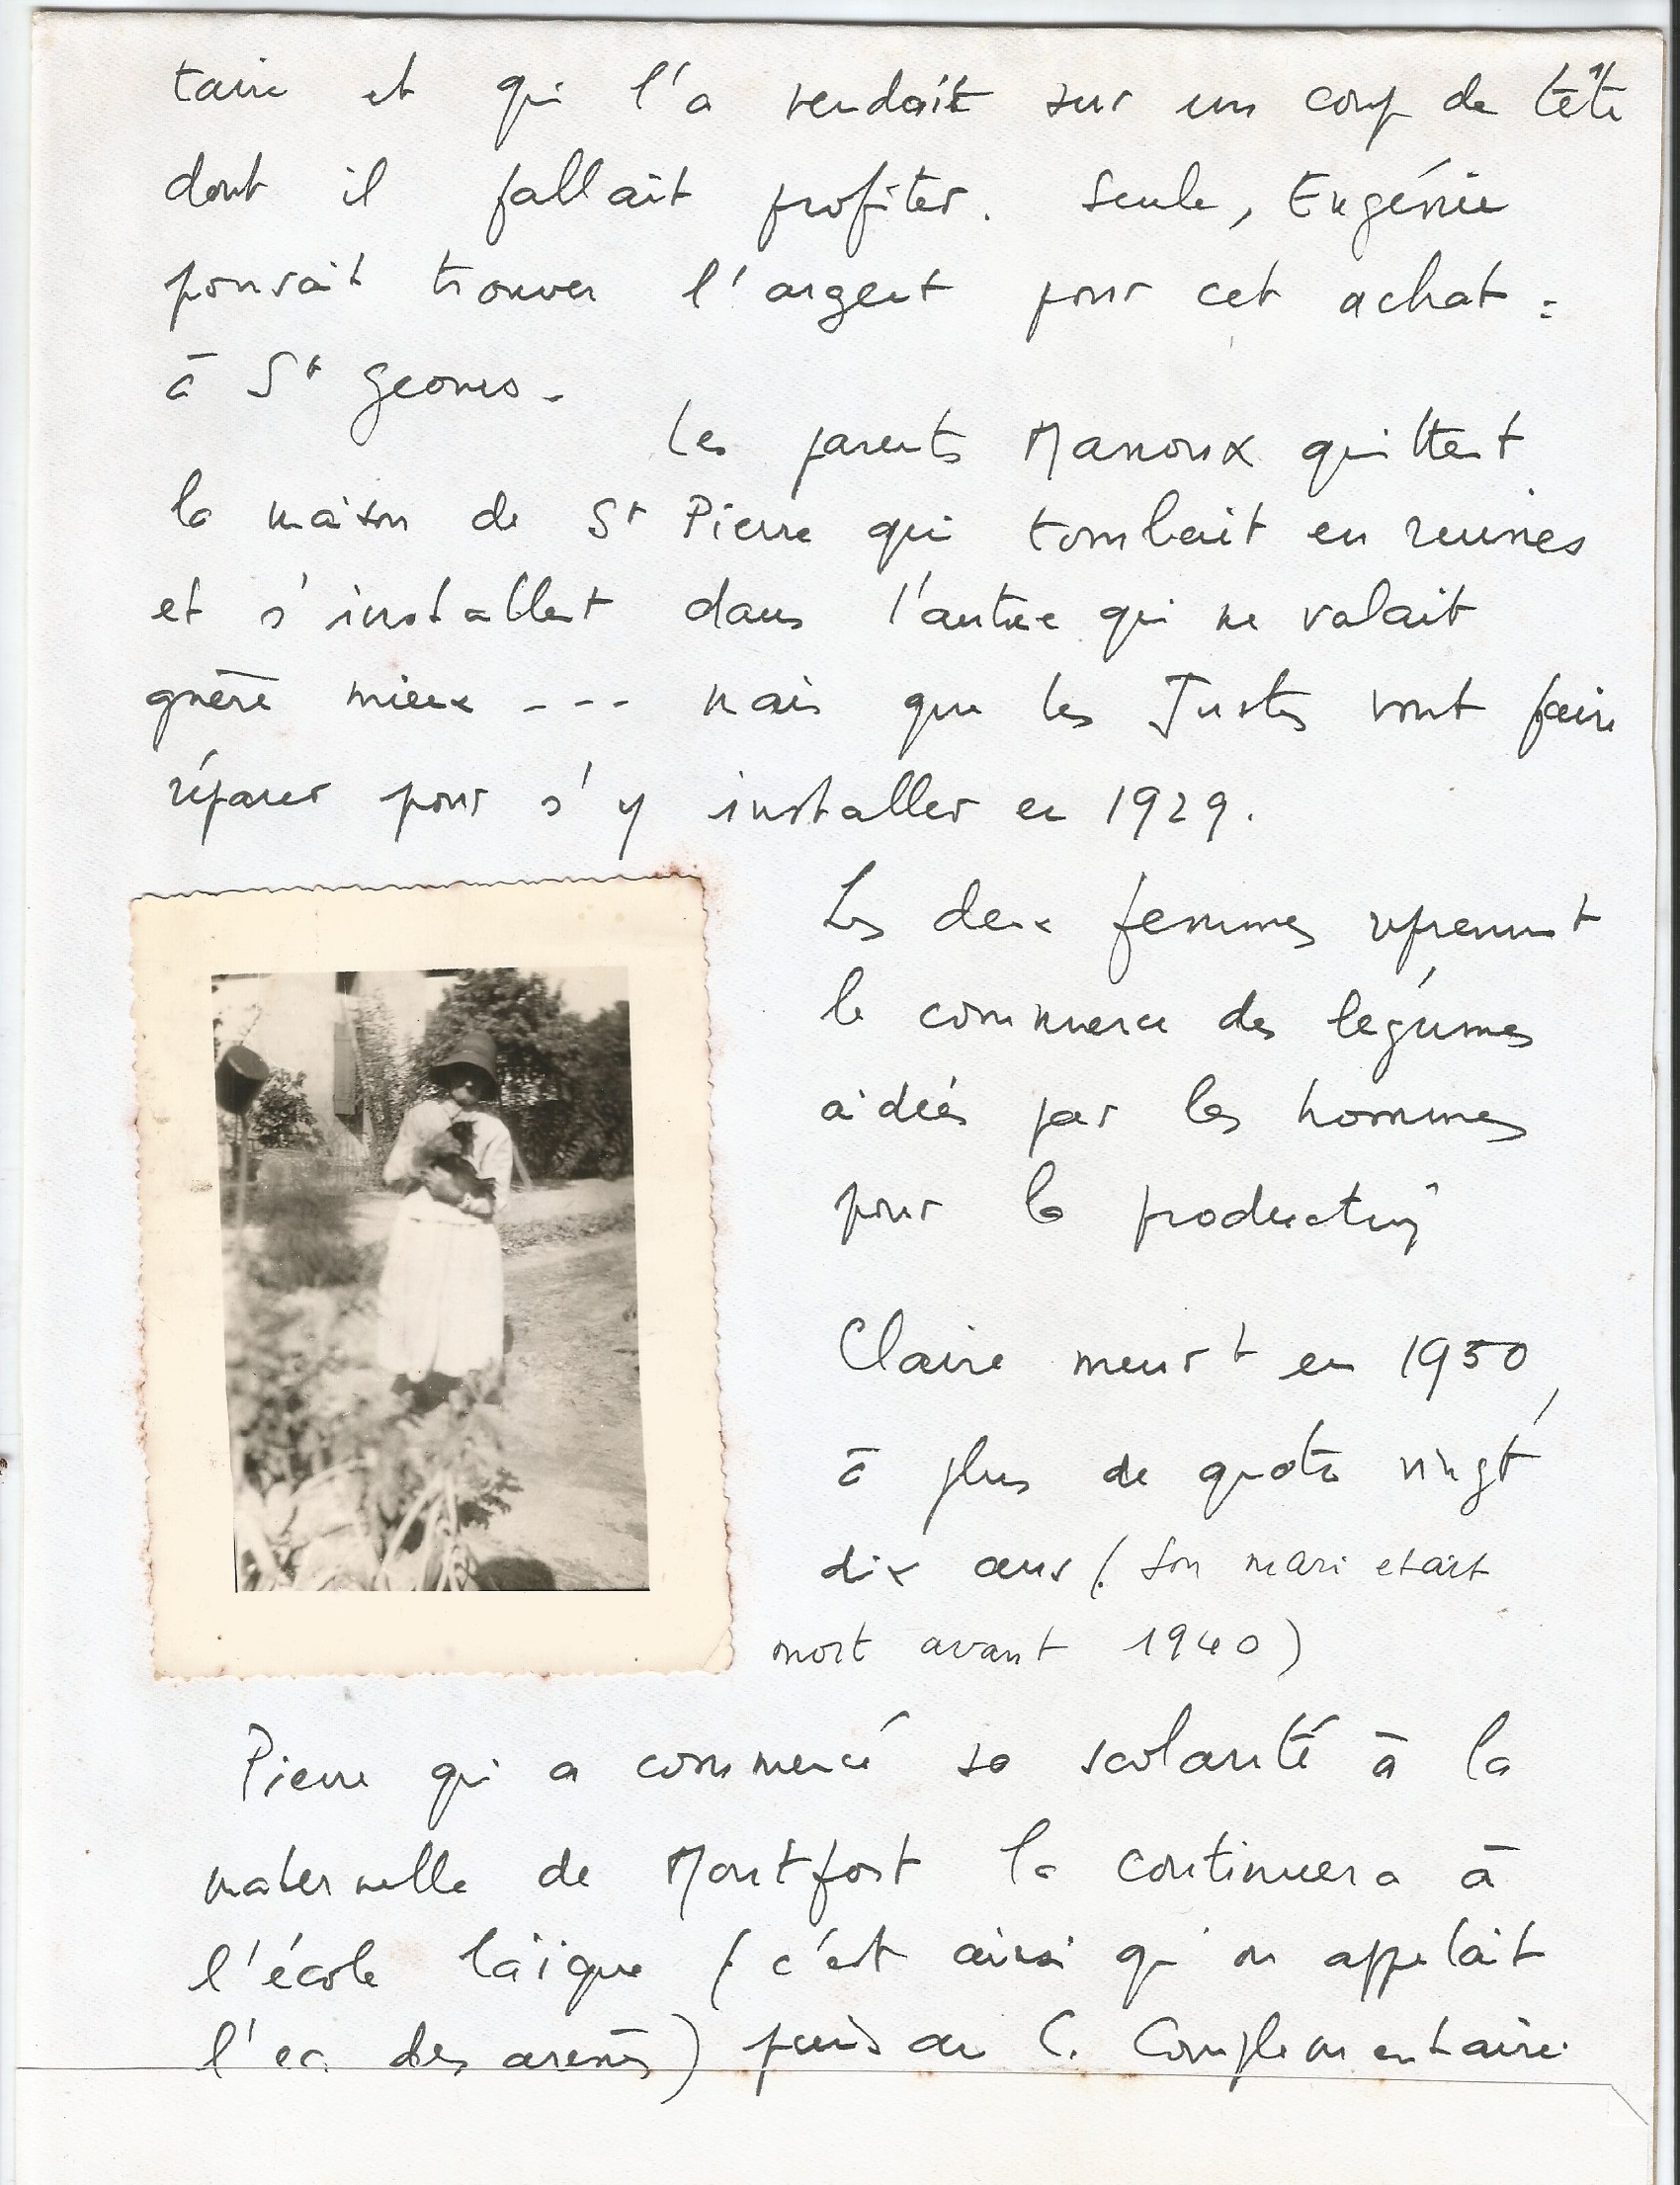 taire et qui l'a vendait sur un coup de tête
dont il fallait profiter. Seule, Eugénie
pouvait trouver l'argent pour cet achat :
à St Geours.
Les parents Manoux quittent
la maison de St Pierre qui tombait en ruines
et s'installent dans l'autre qui ne valait
guère mieux --- mais que les Justes vont faire
réparer pour s'y installer en 1929.
Les deux femmes reprennent
le commerce des légumes
aidées par les hommes
pour la production
Claire meurt en 1950,
à plus de quatre vingt
dix ans (son mari etait
mort avant 1940)
Pierre qui a commencé sa scolarité à la
maternelle de Montfort la continuera à
l'école laïque (c'est ainsi qu'on appelait
l'ec. des arènes) puis au C. Complementaire